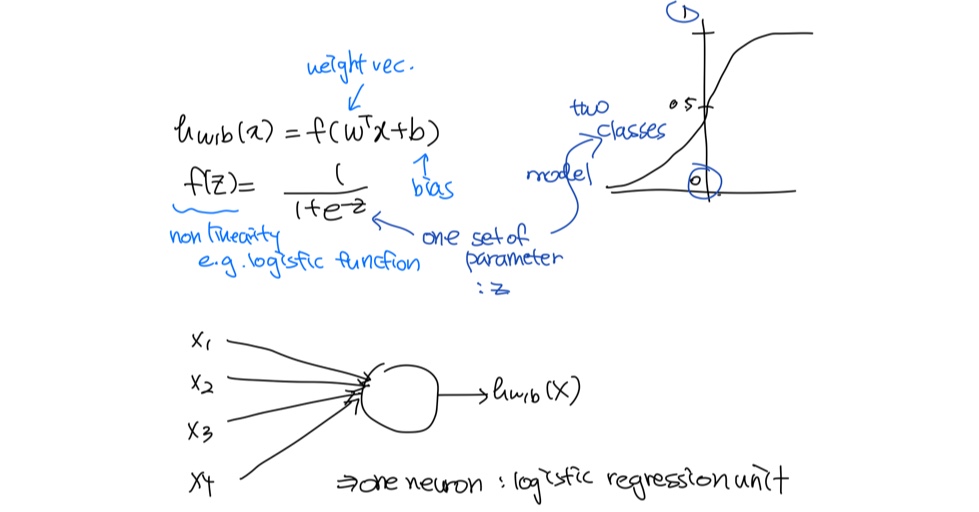 weight vec.
hw,b(x) = f(wᵀx+b)
bias
f(z) = 1/(1+e^-z)
non linearity
e.g. logistic function
one set of
parameter
: z
model
two
classes
1
0.5
0
x1
x2
x3
x4
hw,b(x)
⇒ one neuron : logistic regression unit